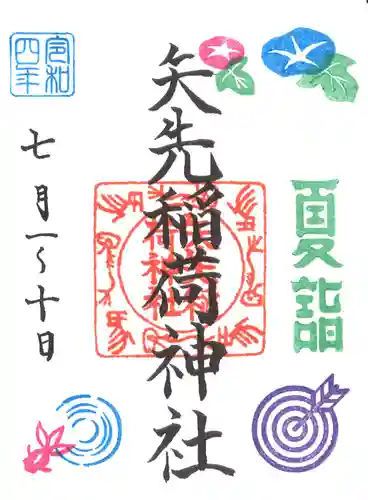 夏詣
矢先稲荷神社
令和
四年
七月一〜十日